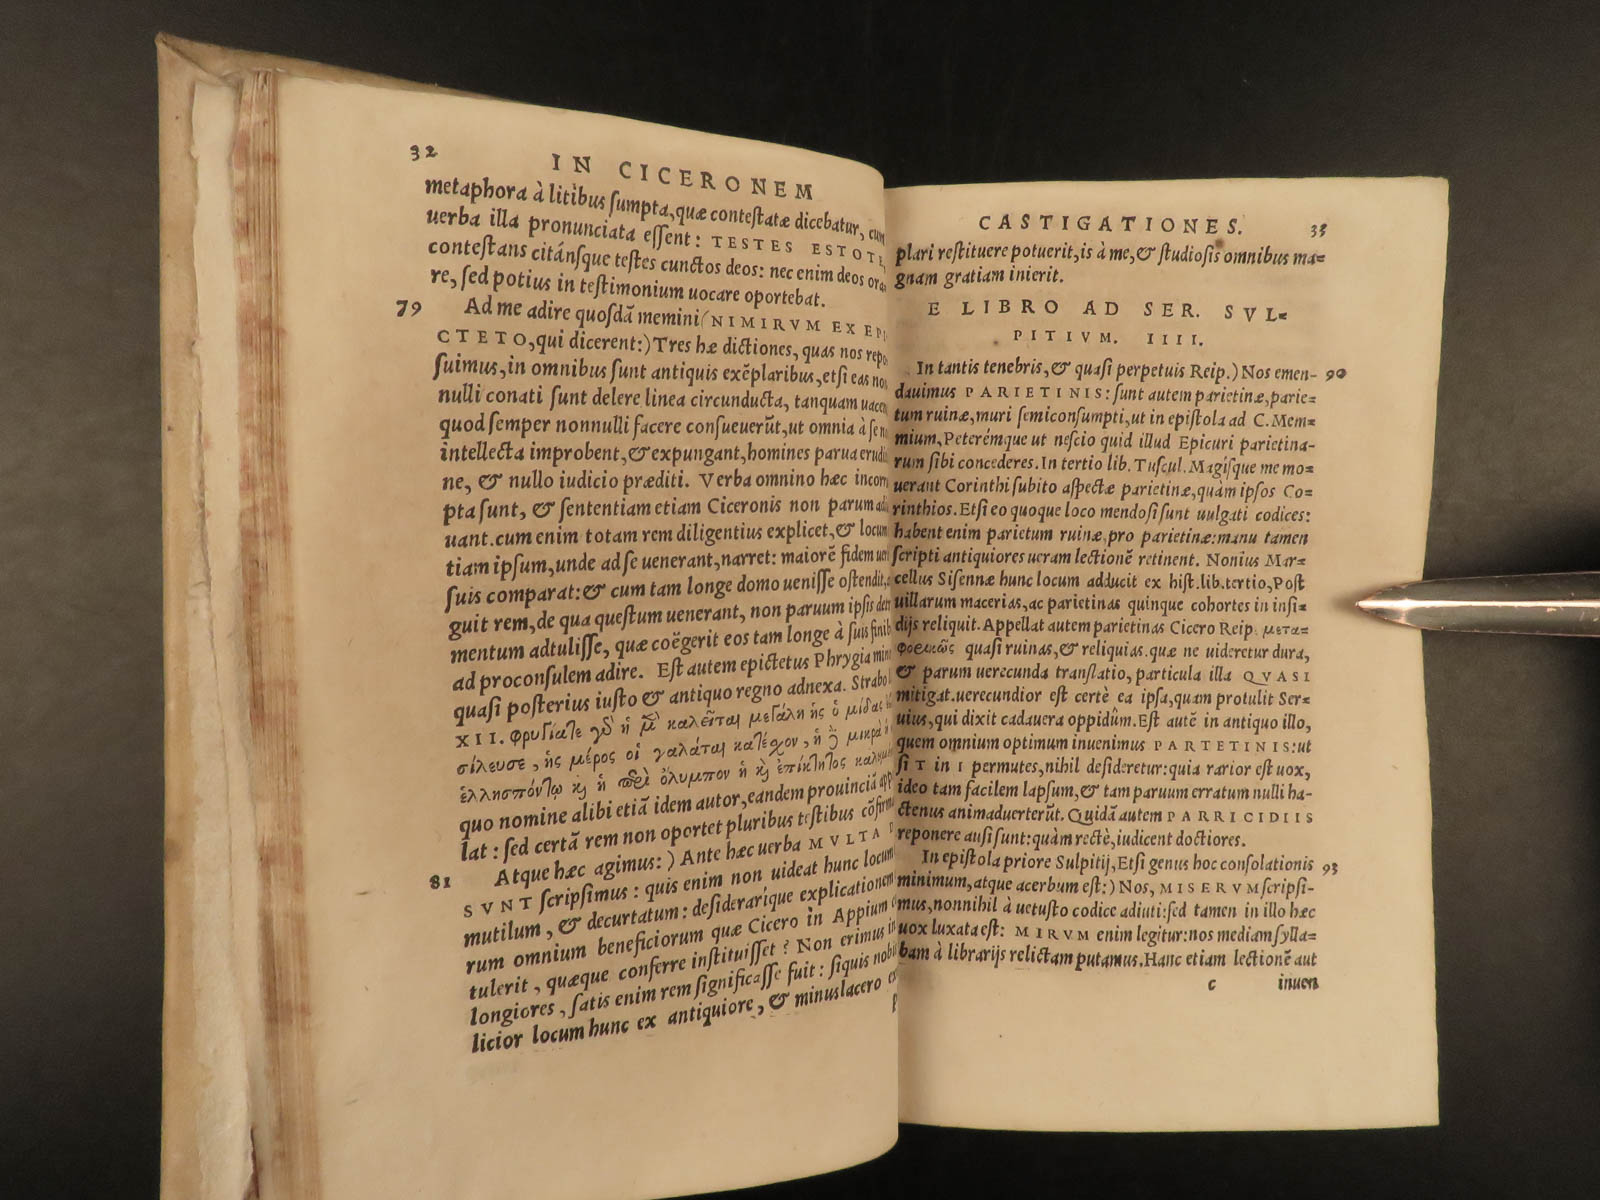 32
IN CICERONEM
metaphora à litibus sumpta, quæ contestatæ dicebatur, cum
uerba illa pronunciata essent: TESTES ESTOTE,
contestans citánsque testes cunctos deos: nec enim deos ora
re, sed potius in testimonium uocare oportebat.
79 Ad me adire quosdã memini (NIMIRVM EX EPI
CTETO, qui dicerent:) Tres hæ dictiones, quas nos repo
suimus, in omnibus sunt antiquis exẽplaribus, etsi eas non
nulli conati sunt delere linea circunducta, tanquam uacent
quod semper nonnulli facere consueuerũt, ut omnia à se
intellecta improbent, & expungant, homines parua erudi
ne, & nullo iudicio præditi. Verba omnino hæc incorr
pta sunt, & sententiam etiam Ciceronis non parum
uant. cum enim totam rem diligentius explicet, & locum
tiam ipsum, unde ad se uenerant, narret: maiorẽ fidem
suis comparat: & cum tam longe domo uenisse ostendit,
guit rem, de qua questum uenerant, non paruum ipsis
mentum adtulisse, quæ coëgerit eos tam longe à suis finib
ad proconsulem adire. Est autem epictetus Phrygia
quasi posterius iusto & antiquo regno adnexa. Strabo
XII. φρυγία τε γὸ ἡ μὲν καλεῖται μεγάλη ἧς ὁ μίδας
σίλευσε, ἧς μέρος οἱ γαλάται κατέχον, ἡ ὃ μικρὰ ἡ
ἑλλησπόντῳ κὴ ἡ περὶ ὄλυμπον ἡ κὴ ἐπίκτητος
quo nomine alibi etiã idem autor, eandem prouinciã app
lat: sed certã rem non oportet pluribus testibus cõfirma
81 Atque hæc agimus:) Ante hæc uerba MVLTA D
SVNT scripsimus: quis enim non uideat hunc locum
mutilum, & decurtatum: desiderarique explicationem
rum omnium beneficiorum quæ Cicero in Appium
tulerit, quæque conferre instituisset? Non erimus in
longiores, satis enim rem significasse fuit: siquis nobis
licior locum hunc ex antiquiore, & minus lacero
CASTIGATIONES. 33
plari restituere potuerit, is à me, & studiosis omnibus ma=
gnam gratiam inierit.
E LIBRO AD SER. SVL=
PITIVM. IIII.
In tantis tenebris, & quasi perpetuis Reip.) Nos emen- 90
dauimus PARIETINIS: sunt autem parietinæ, parie=
tum ruinæ, muri semiconsumpti, ut in epistola ad C. Mem=
mium, Peterémque ut nescio quid illud Epicuri parietina-
rum sibi concederes. In tertio lib. Tuscul. Magisque me mo=
uerant Corinthi subito aspectæ parietinæ, quàm ipsos Co=
rinthios. Etsi eo quoque loco mendosi sunt uulgati codices:
habent enim parietum ruinæ, pro parietinæ: manu tamen
scripti antiquiores ueram lectionẽ retinent. Nonius Mar=
cellus Sisennæ hunc locum adducit ex hist. lib. tertio, Post
uillarum macerias, ac parietinas quinque cohortes in insi=
dijs reliquit. Appellat autem parietinas Cicero Reip. μετα=
φορικῶς quasi ruinas, & reliquias. quæ ne uideretur dura,
& parum uerecunda translatio, particula illa QVASI
mitigat. uerecundior est certè ea ipsa, quam protulit Ser=
uius, qui dixit cadauera oppidûm. Est autẽ in antiquo illo,
quem omnium optimum inuenimus PARTETINIS: ut
si T in I permutes, nihil desideretur: quia rarior est uox,
ideo tam facilem lapsum, & tam paruum erratum nulli ha-
ctenus animaduerterũt. Quidã autem PARRICIDIIS
reponere ausi sunt: quàm rectè, iudicent doctiores.
In epistola priore Sulpitij, Etsi genus hoc consolationis 93
minimum, atque acerbum est:) Nos, MISERVM scripsi-
mus, nonnihil à uetusto codice adiuti: sed tamen in illo hæc
uox luxata est: MIRVM enim legitur: nos mediam sylla=
bam à librarijs relictam putamus. Hanc etiam lectionẽ aut
c inuen